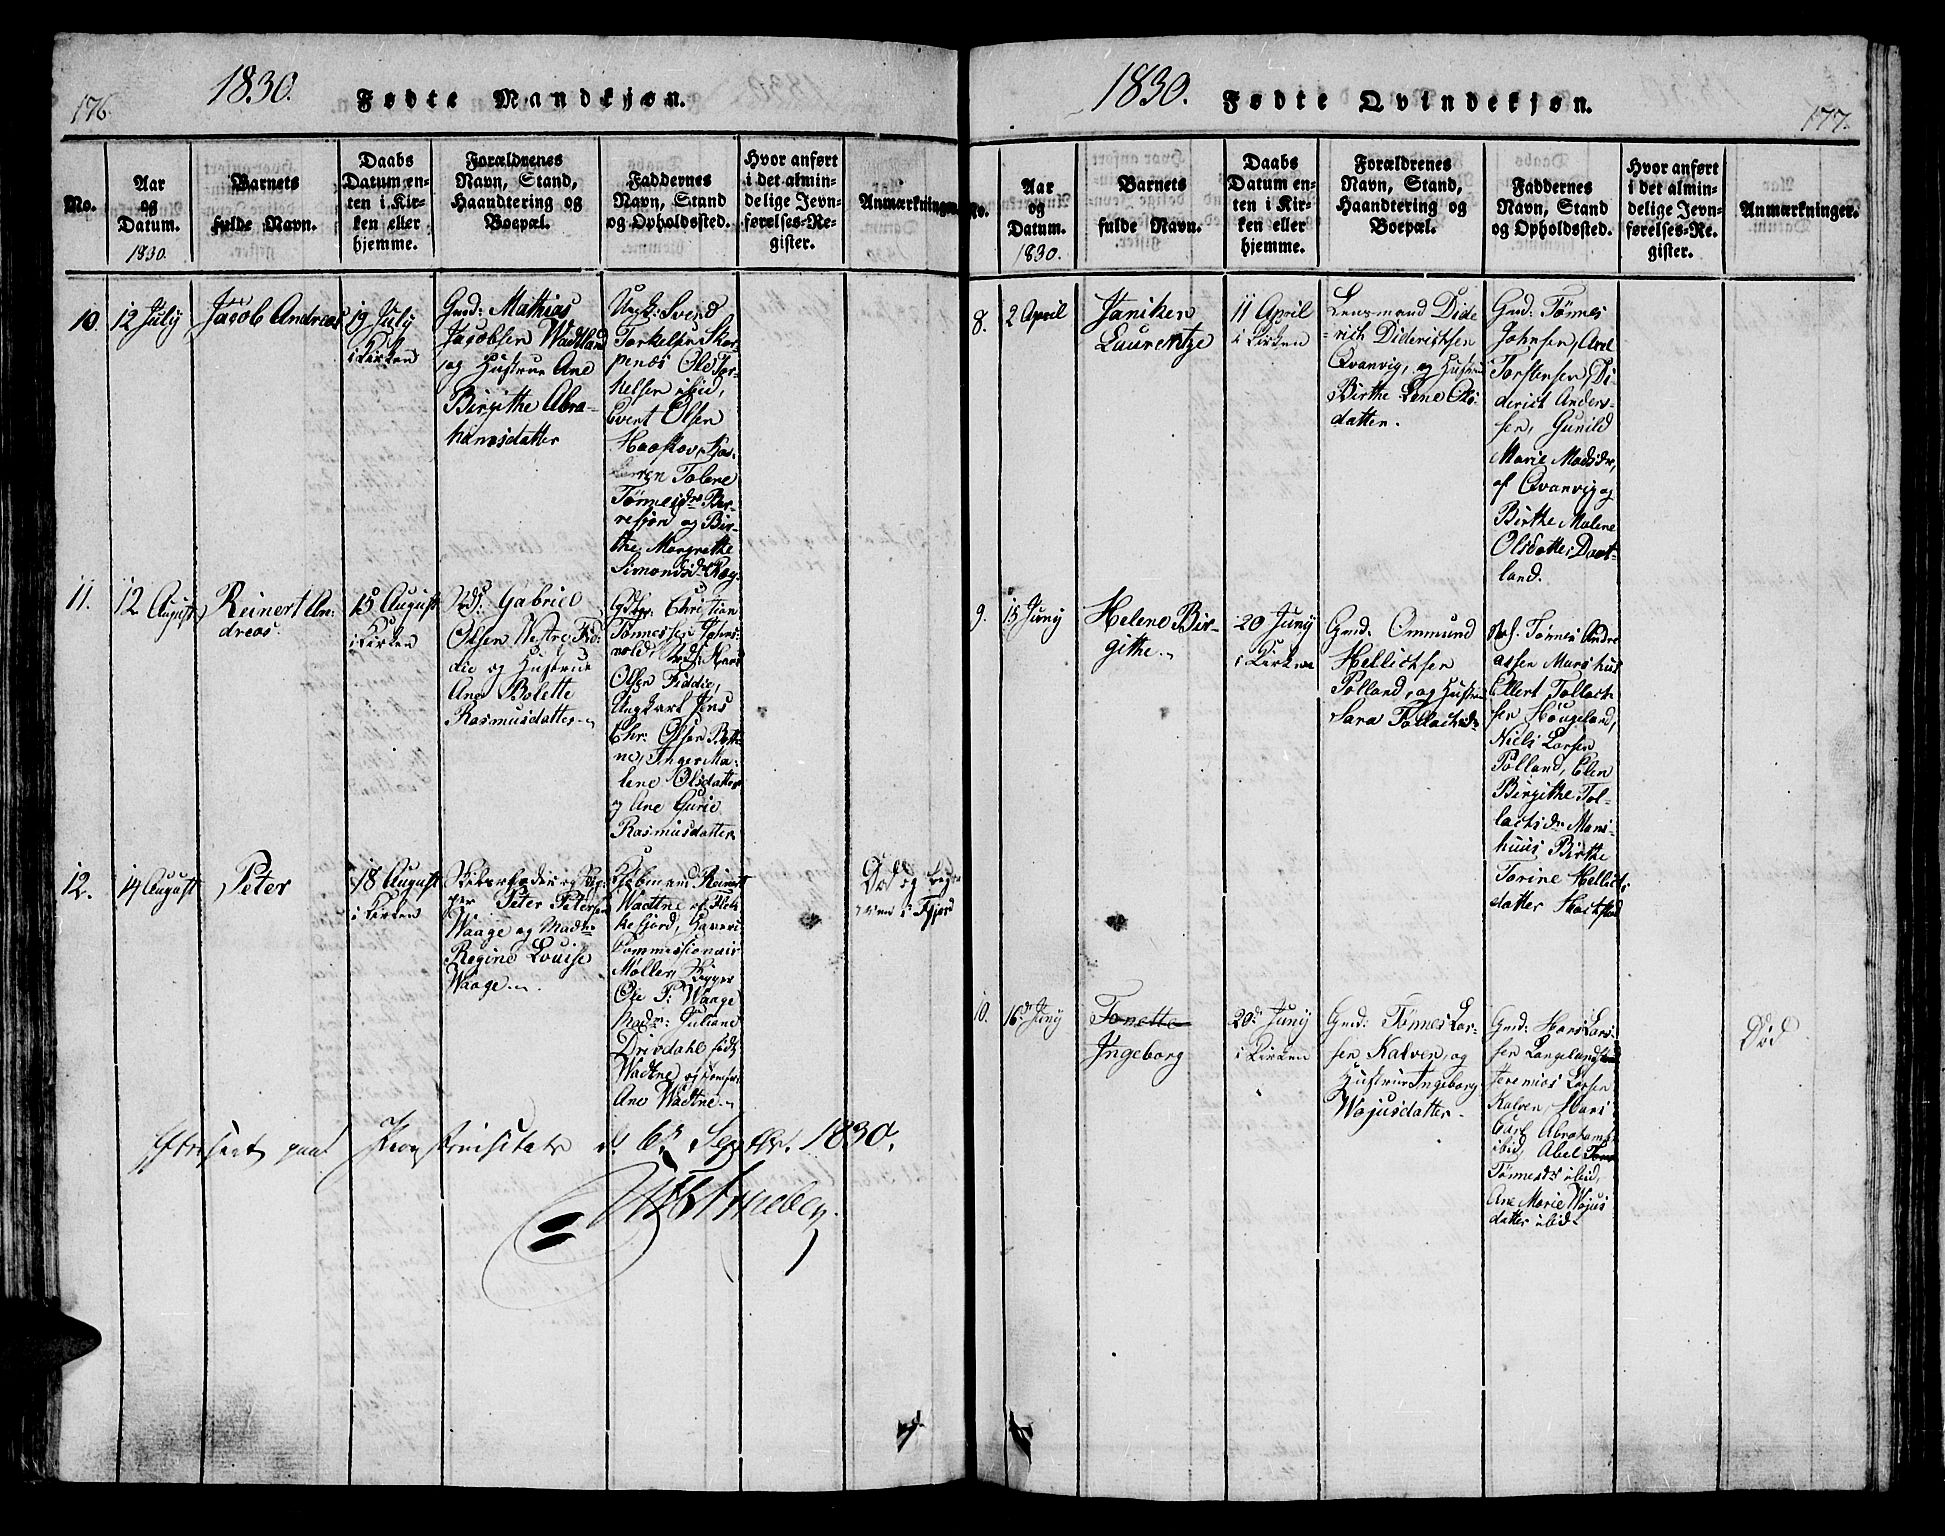 176.
1830.
Fødte Mandkjøn.
No.
Aar
og
Datum.
1830.
Barnets
fulde Navn.
Daabs
Datum en-
ten i Kir-
ken eller
hjemme.
Forældrenes
Navn, Stand,
Haandtering og
Boepæl.
Faddernes
Navn, Stand
og Opholdssted.
Hvor anført
i det almin-
delige Jevn-
førelses-Re-
gister.
Anmærkninger.
10.
12 July
Jacob Andreas
19 July
i Kirken
Gmd: Mathias
Jacobsen Wadtland
og Hustrue Ane
Birgithe Abra-
hamsdatter
Ungk: Svend
Torkelsen Skar-
penæs Ole Tor-
kelsen ibid,
Evert Olsen
Tolene
Tønnesdr
og Bir-
the Margrethe
Simonsdr
11.
12 August
Reinert An-
dreas.
15 August
i Kirken
Gabriel
Olsen Vestre Fid-
die og Hustrue
Ane Bolette
Rasmusdatter
Christian
Tønnessen
Olsen Fiddie,
Ungkarl Jens
Chr: Olsen
Inger Ma-
lene Olsdatter
og Ane Gurie
Rasmusdatter
12.
14 August
Peter
18 August
i Kirken
Peter Petersen
Waage og Madme
Regine Louise
Waage
Kjøbmand Reinert
Wadtne af Flek-
kefjord,
Commissionair
Møller,
Ole P: Waage
Madm: Juliane
Drivdahl født
Wadtne, og Jomfr:
Ane Wadtne
Død og
Efterseet paa d. 6te Septbr. 1830.
1830.
Fødte Qvindekjøn.
177.
No.
Aar
og
Datum.
1830.
Barnets
fulde Navn.
Daabs
Datum en-
ten i Kir-
ken eller
hjemme.
Forældrenes
Navn, Stand,
Haandtering og
Boepæl.
Faddernes
Navn, Stand
og Opholdssted.
Hvor anført
i det almin-
delige Jevn-
førelses-Re-
gister.
Anmærkninger.
8.
2 April
Janiken
Laurentze
11 April
i Kirken
Lensmand Dide
rich Diderichsen
Qvanvig, og Hustrue
Birthe Lene Ols-
datter.
Gmd: Tønnes
Johnsen, Arel
Torstensen, Di-
derich Anders-
sen, Gunild
Marie Madsdr,
af Qvanvig og
Birthe Malene
Olsdatter Daat-
land.
9.
15 Juny
Helene Bir-
githe
20 Juny
i Kirken
Gmd: Ommund
Hellichsen
Polland, og Hustrue
Sara Tollachsdr
Tønnes Andre
assen Marshuus
Ellert Tollach
sen Hougeland,
Niels Larsen
Polland, Elen
Birgithe Tol-
lachsdr Mars-
huus Birthe
Torine Hellichs
datter
10.
16de Juny
Tonette
Ingeborg
20de Juny
i Kirken
Gmd: Tønnes Lar-
sen Kalven, og
Hustrue Ingeborg
Wajusdatter
Gmd: Hans Lars-
sen
Jeremias Larsen
Kalven, Hans
Carl Abrahams
ibid, Abel
Tønnesdr ibid,
Ane Marie Wajus
datter ibid
Død